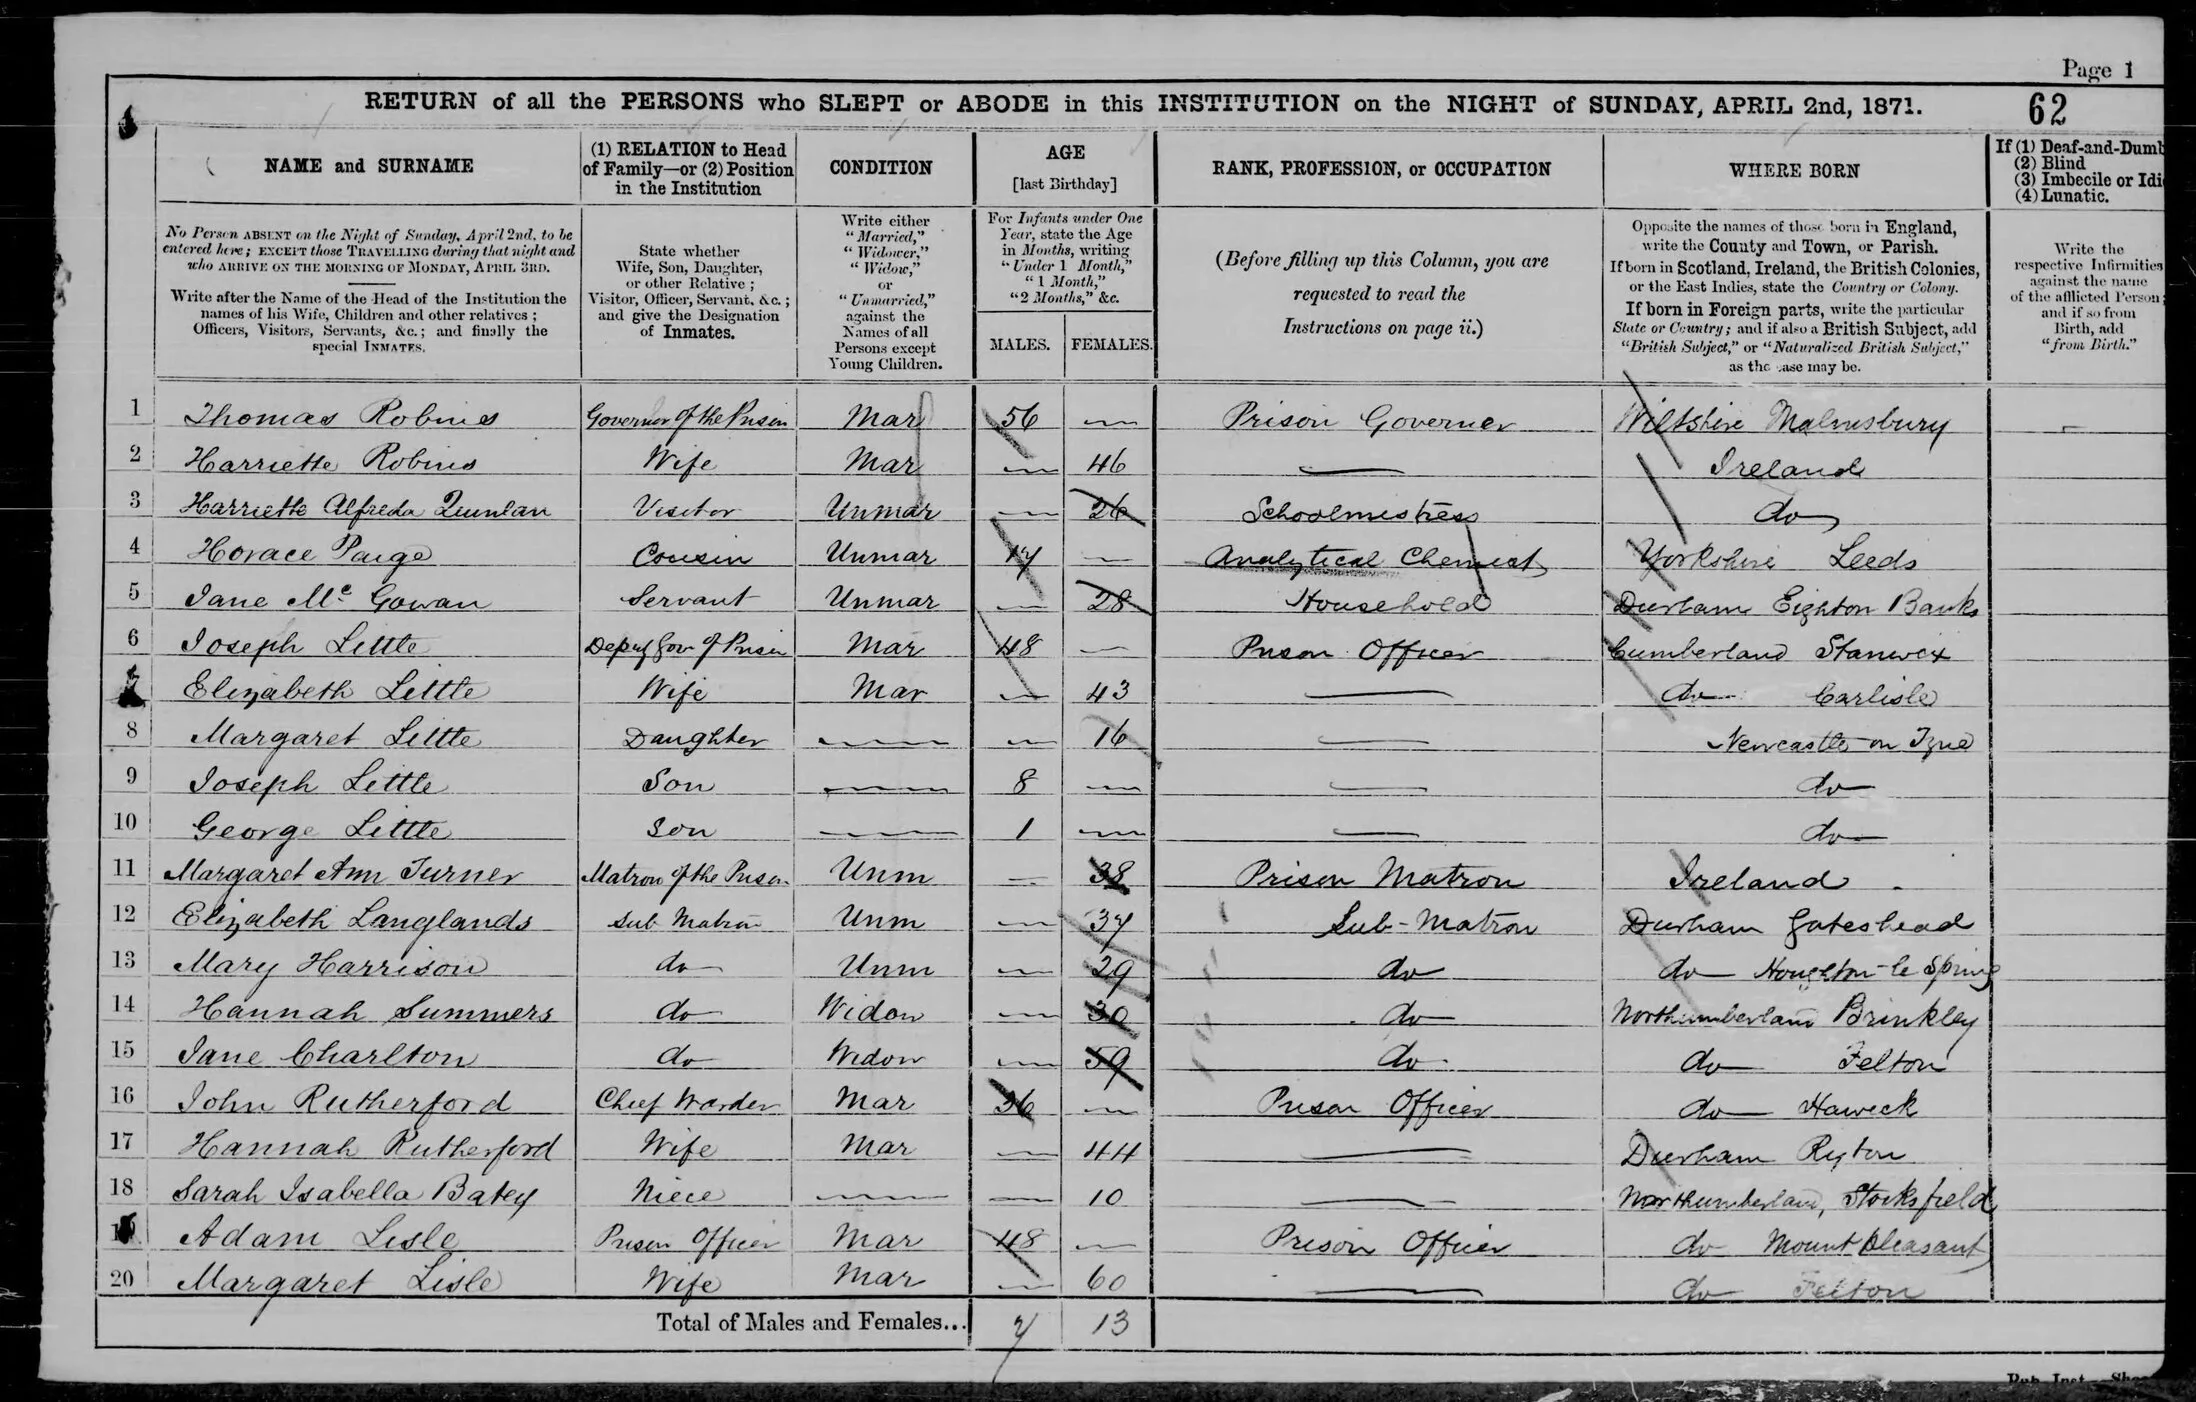 Page 1
RETURN of all the PERSONS who SLEPT or ABODE in this INSTITUTION on the NIGHT of SUNDAY, APRIL 2nd, 1871.
62
NAME and SURNAME
No Person ABSENT on the Night of Sunday, April 2nd, to be
entered here; EXCEPT those TRAVELLING during that night and
who ARRIVE ON THE MORNING OF MONDAY, APRIL 3RD.
Write after the Name of the Head of the Institution the
names of his Wife, Children and other relatives;
Officers, Visitors, Servants, &c.; and finally the
special INMATES.
(1) RELATION to Head
of Family—or (2) Position
in the Institution
State whether
Wife, Son, Daughter,
or other Relative;
Visitor, Officer, Servant, &c.;
and give the Designation
of Inmates.
CONDITION
Write either
"Married,"
"Widower,"
"Widow,"
or
"Unmarried,"
against the
Names of all
Persons except
Young Children.
AGE
[last Birthday]
For Infants under One
Year, state the Age
in Months, writing
"Under 1 Month,"
"1 Month,"
"2 Months," &c.
MALES. FEMALES.
RANK, PROFESSION, or OCCUPATION
(Before filling up this Column, you are
requested to read the
Instructions on page ii.)
WHERE BORN
Opposite the names of those born in England,
write the County and Town, or Parish.
If born in Scotland, Ireland, the British Colonies,
or the East Indies, state the Country or Colony.
If born in Foreign parts, write the particular
State or Country; and if also a British Subject, add
"British Subject," or "Naturalized British Subject,"
as the case may be.
If (1) Deaf-and-Dumb
(2) Blind
(3) Imbecile or Idi
(4) Lunatic.
Write the
respective Infirmities
against the name
of the afflicted Person;
and if so from
Birth, add
"from Birth."
1 Thomas Robins Governor of the Prison Mar 56 — Prison Governer Wiltshire Malmsbury
2 Harriette Robins Wife Mar — 46 — Ireland
3 Harriette Alfreda Quinlan Visitor Unmar — 26 Schoolmistress do
4 Horace Paige Cousin Unmar 17 — Analytical Chemist Yorkshire Leeds
5 Jane Mc Gowan Servant Unmar — 28 Household Durham Eighton Banks
6 Joseph Little Depy Gov of Prison Mar 48 — Prison Officer Cumberland Stanwix
7 Elizabeth Little Wife Mar — 43 — do Carlisle
8 Margaret Little Daughter — — 16 — Newcastle on Tyne
9 Joseph Little Son — 8 — — do
10 George Little Son — 1 — — do
11 Margaret Ann Turner Matron of the Prison Unm — 38 Prison Matron Ireland
12 Elizabeth Langlands Sub Matron Unm — 37 Sub-Matron Durham Gateshead
13 Mary Harrison do Unm — 29 do do Houghton-le Spring
14 Hannah Summers do Widow — 30 do Northumberland Brinkley
15 Jane Charlton do Widow — 59 do do Felton
16 John Rutherford Chief Warder Mar 36 — Prison Officer do Hawick
17 Hannah Rutherford Wife Mar — 44 — Durham Ryton
18 Sarah Isabella Batey Niece — — 10 — Northumberland, Stocksfield
Adam Lisle Prison Officer Mar 48 — Prison Officer do Mount Pleasant
20 Margaret Lisle Wife Mar — 60 — do Felton
Total of Males and Females... 7 13